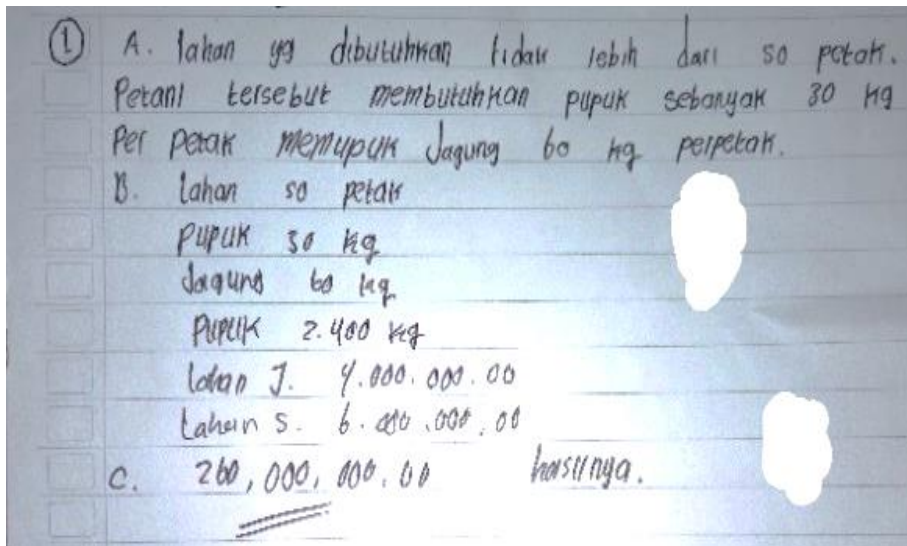 ① A. lahan yg dibutuhkan tidak lebih dari 50 petak.
Petani tersebut membutuhkan pupuk sebanyak 30 kg
Per petak memupuk Jagung 60 kg perpetak.
B. Lahan 50 petak
Pupuk 30 kg
Jagung 60 kg
Pupuk 2.400 kg
lahan J. 4.000.000.00
Lahan S. 6.000.000.00
C. 260,000,000.00 hasilnya.